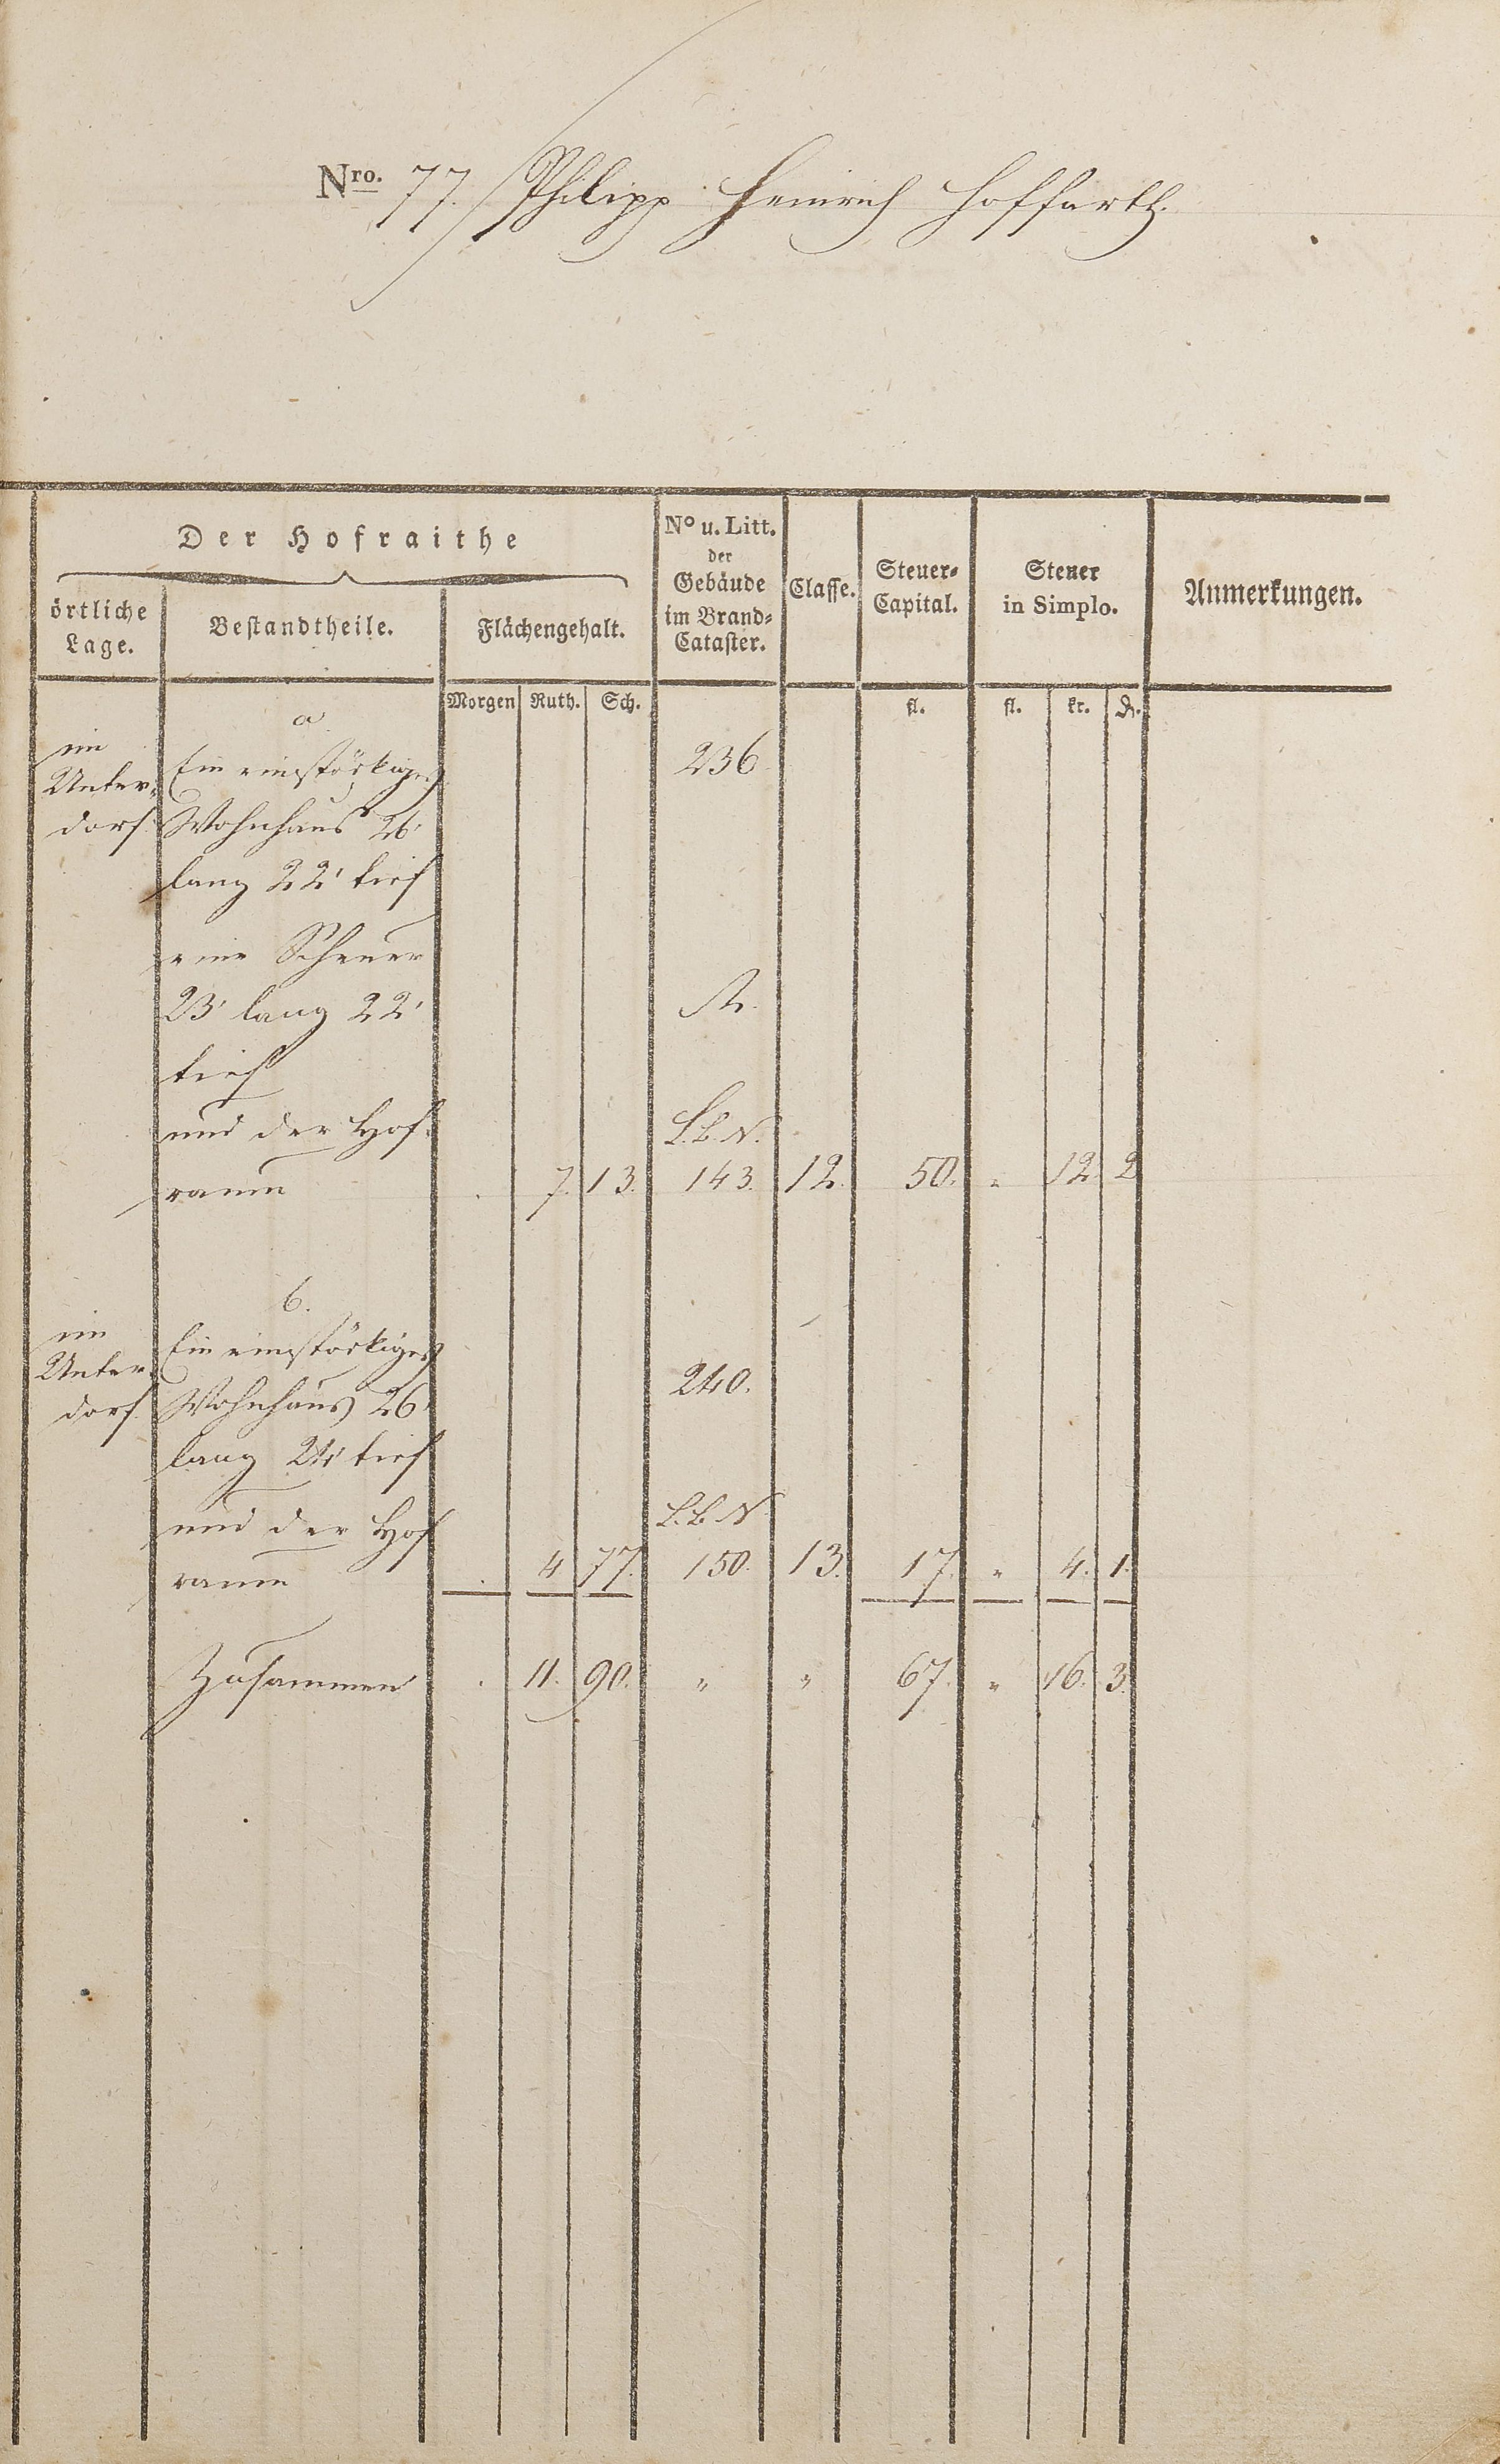 Nro. 77. Philipp Heinrich Hoffarth.
Der Hofraithe
örtliche Lage.
Bestandtheile.
Flächengehalt.
No u. Litt. der Gebäude im Brand-Cataster.
Classe.
Steuer-Capital.
Steuer in Simplo.
Anmerkungen.
Morgen Ruth. Sch. fl. fl. kr. ₰.
a
im
Unter-
dorf.
Ein einstöckiges 236
Wohnhaus 26'
lang 22' tief
eine Scheuer
23' lang 22'
tief
und der Hof- L. b. N.
raum . 7. 13. 143. 12. 50. " 12 2
b.
im
Unter-
dorf.
Ein einstöckiges
Wohnhaus 26' 240.
lang 24' tief
und der Hof L. b. N.
raum . 4 77. 150. 13. 17. " 4. 1.
Zusammen . 11. 90. " " 67. " 16. 3.